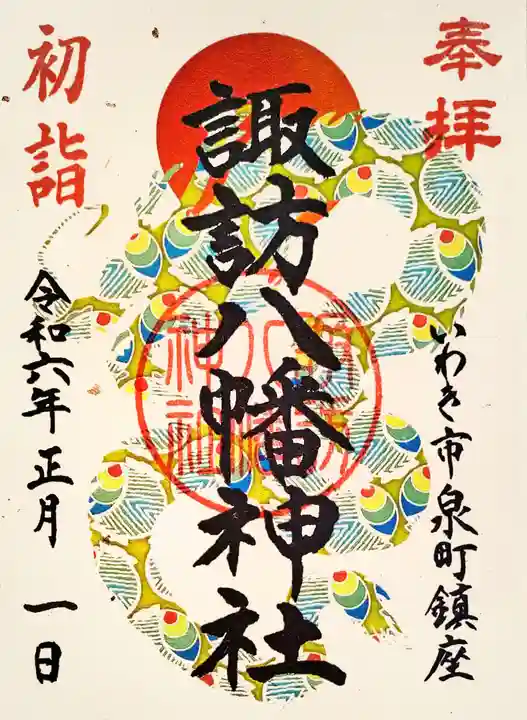 奉拝
いわき市泉町鎮座
諏訪八幡神社
初詣
令和六年正月一日